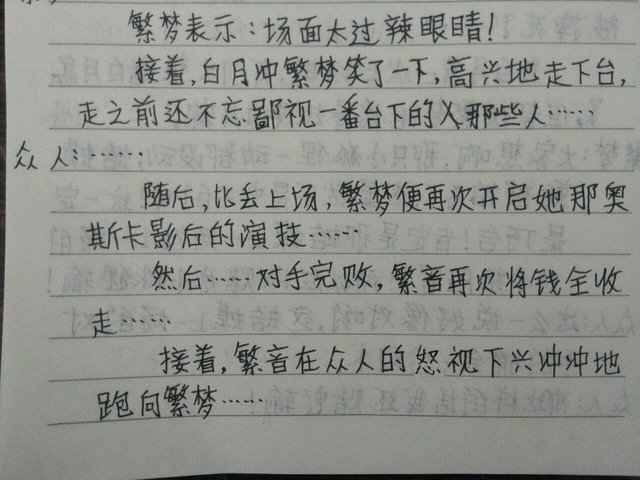 繁梦表示:场面太过辣眼睛!
接着,白月冲繁梦笑了一下,高兴地走下台,
走之前还不忘鄙视一番台下的人那些人……
众人:……
随后,比丢上场,繁梦便再次开启她那奥
斯卡影后的演技……
然后……对手完败,繁音再次将钱全收
走……
接着,繁音在众人的怒视下兴冲冲地
跑向繁梦……